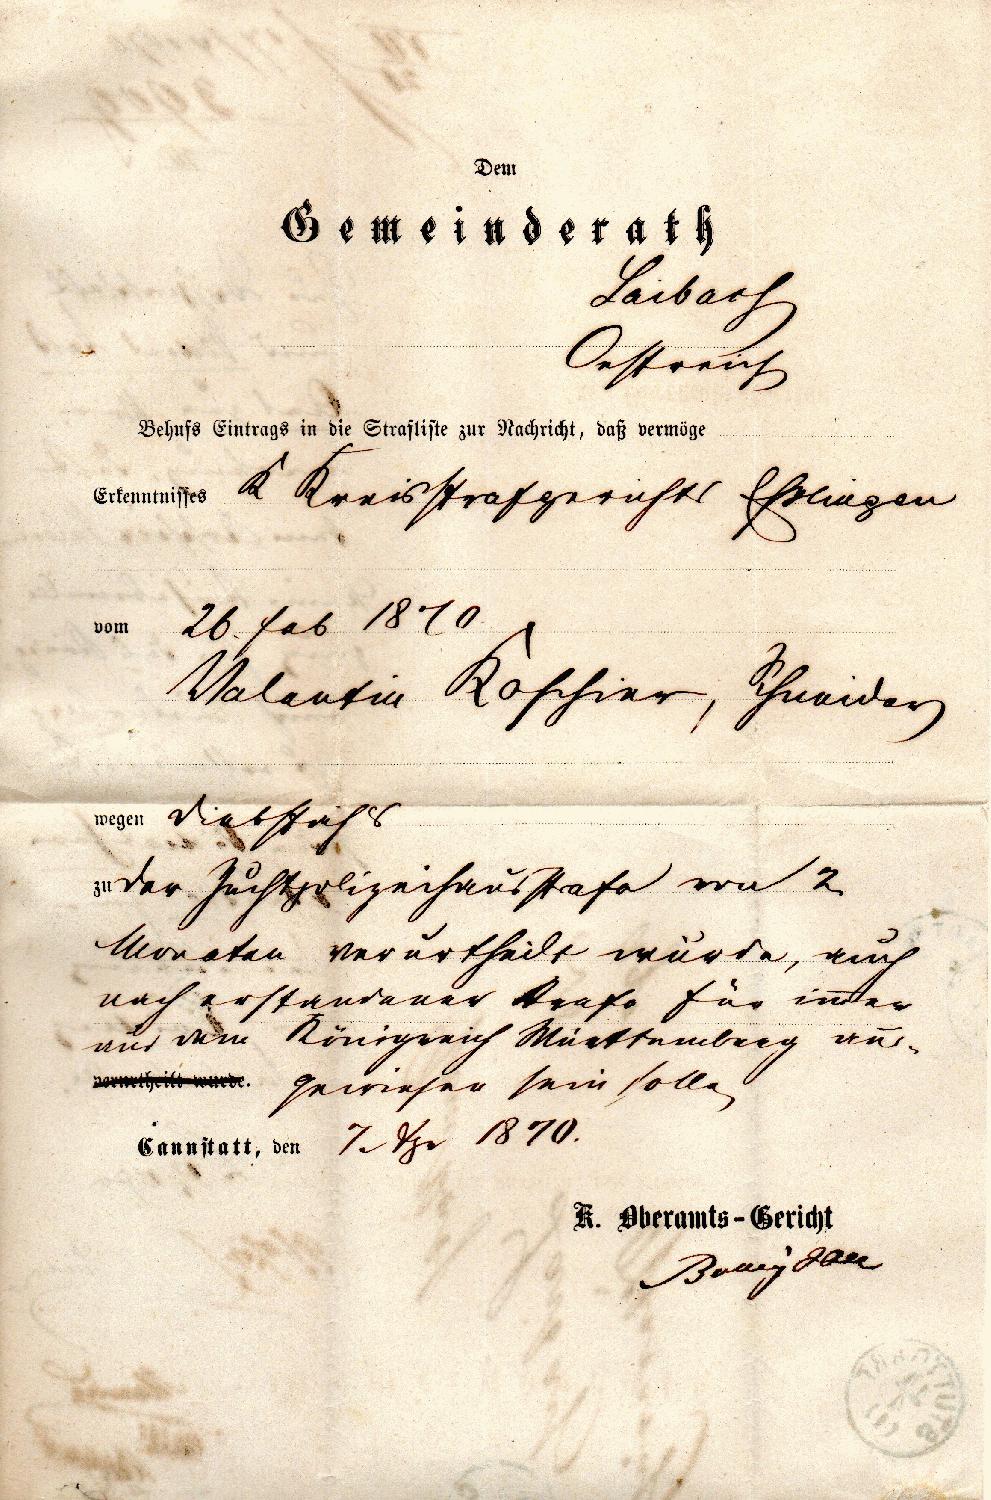 Dem
Gemeinderath
Laibach
Oestreich
Behufs Eintrags in die Strafliste zur Nachricht, daß vermöge
Erkenntnisses K Kreisstrafgerichts Esslingen
vom 26. Feb 1870
Valentin Koschier, Schneider
wegen Diebstahls
zu der Zuchtpolizeihausstrafe von 2
Monaten verurtheilt wurde, auch
nach erstandener Strafe für immer
aus dem Königreich Württemberg aus-
verurtheilt wurde. gewiesen sein solle
Cannstatt, den 7. 1870.
K. Oberamts-Gericht